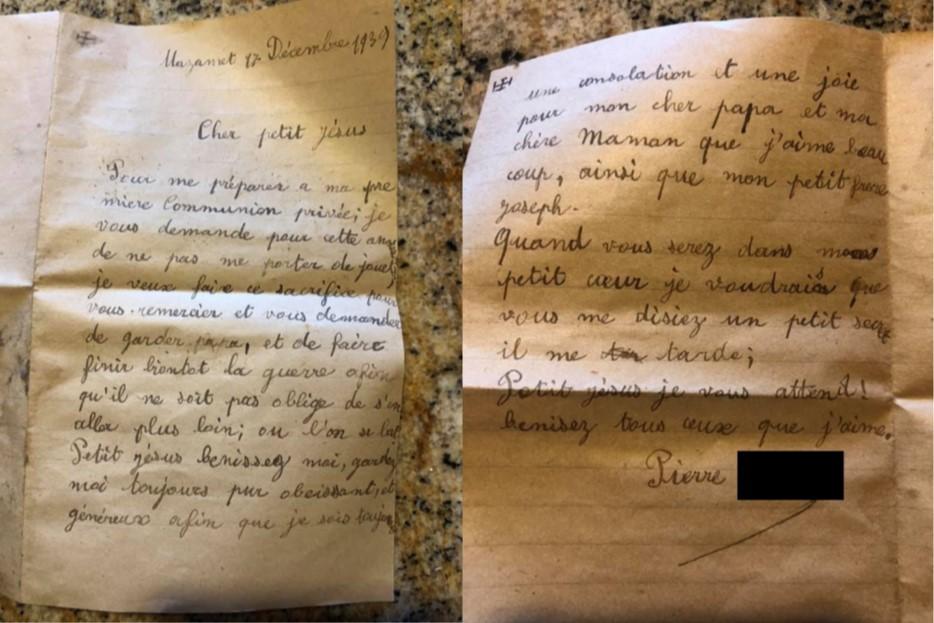 Mazamet 17 Décembre 1939
Cher petit jésus
Pour me préparer a ma pre
mière Communion privée; je
vous demande pour cette
de ne pas me porter de jouets
je veux faire ce sacrifice pour
vous remercier et vous demander
de garder papa, et de faire
finir bientot la guerre afin
qu'il ne soit pas oblige de s'en
aller plus loin; ou l'on se bat
Petit jésus benissez moi, gardez
moi toujours pur obeissant, et
généreux afin que je sois toujours
une consolation et une joie
pour mon cher papa et ma
chère Maman que j'aime beau
coup, ainsi que mon petit frere
joseph.
Quand vous serez dans mon
petit cœur je voudrais que
vous me disiez un petit
il me tarde;
Petit jésus je vous attend!
benisez tous ceux que j'aime.
Pierre